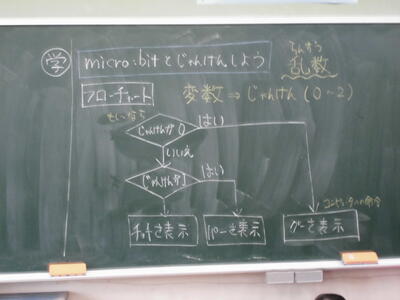 学 micro:bitとじゃんけんしよう
らんすう
乱数
フローチャート
変数 ⇒ じゃんけん (0~2)
もし〜なら
じゃんけんが0
はい
いいえ
じゃんけんが1
はい
コンピュータへの命令
チョキを表示
パーを表示
グーを表示